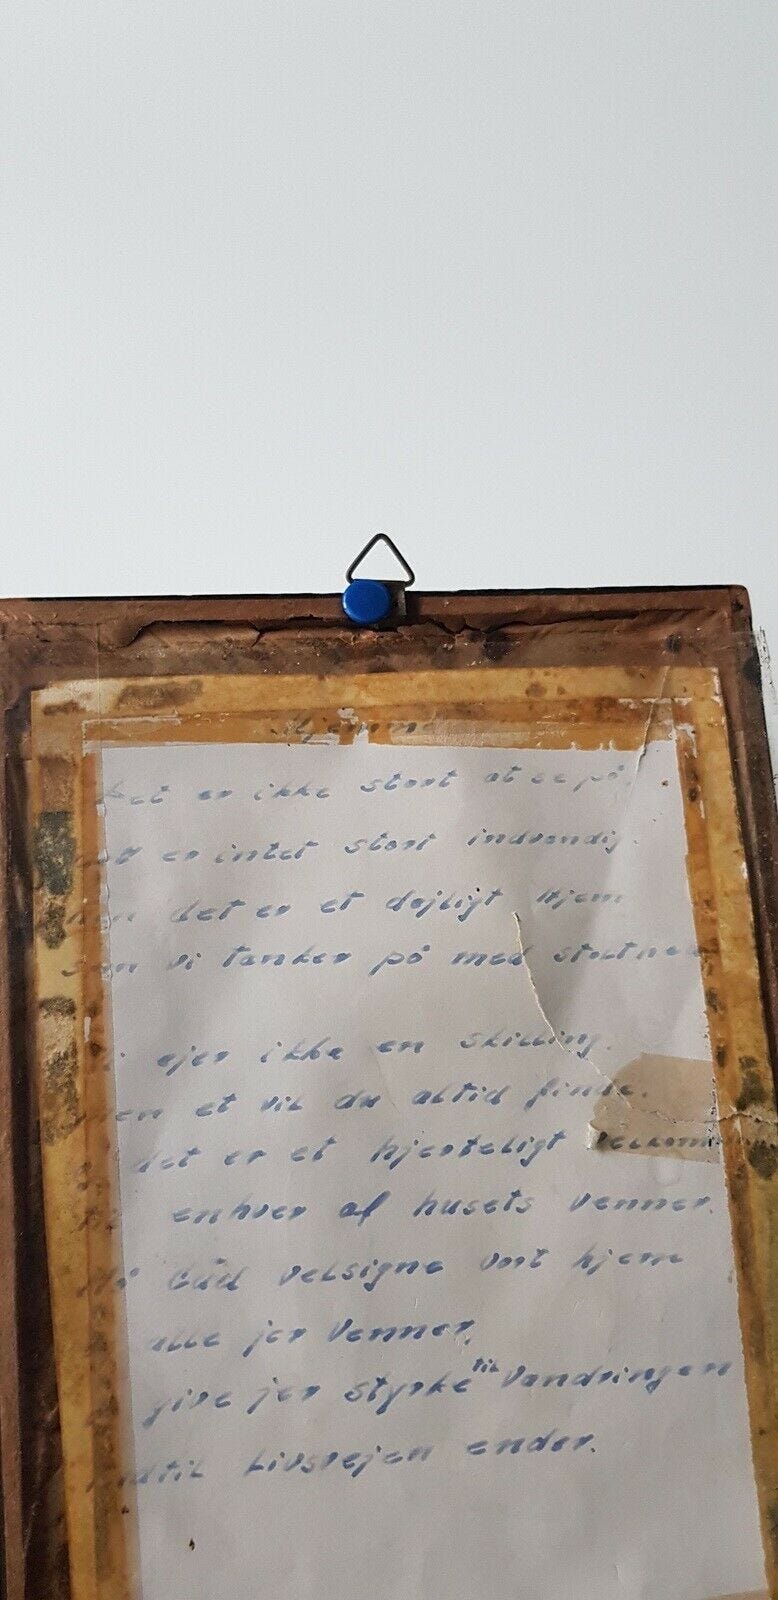 Hjemme
Det er ikke stort at se på,
er intet stort indvendig.
men det er et dejligt Hjem
som vi tanker på med stolthed
Vi ejer ikke en skilling.
men et vil du altid finde.
det er et hjerteligt velkommen
enhver af husets venner.
Må Gud velsigne vort hjem
alle jer venner,
give jer styrke til Vandringen
indtil Livsvejen ender.